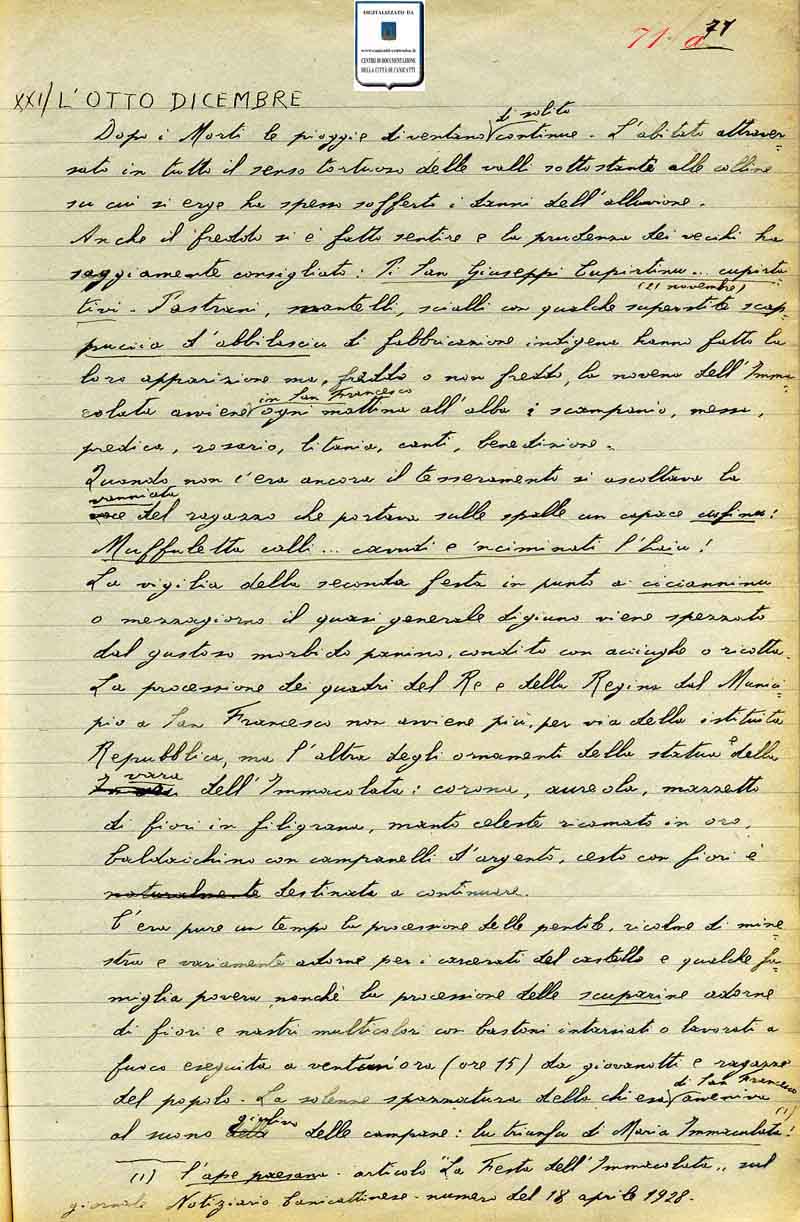 DIGITALIZZATO DA
www.canicatti-centrodoc.it
CENTRO DI DOCUMENTAZIONE
DELLA CITTÀ DI CANICATTÌ
71 a 71
XXI/ L'OTTO DICEMBRE
di solito
Dopo i Morti le pioggie diventano continue. L'abitato attraver=
sato in tutto il senso tortuoso delle valli sottostante alle colline
su cui si erge ha spesso sofferto i danni dell'alluvione.
Anche il freddo si è fatto sentire e la prudenza dei vecchi ha
saggiamente consigliato: Pi San Giuseppi Cupirtinu... cupirta
(21 novembre)
tivi. Pastrani, mantelli, scialli con qualche superstite scap=
puccia d'abbilascia di fabbricazione indigena hanno fatto la
loro apparizione ma, freddo o non freddo, la novena dell'Imma
in San Francesco
colata avviene ogni mattina all'alba: scampanio, messa,
predica, rosario, litania, canti, benedizione.
Quando non c'era ancora il tesseramento si ascoltava la
vanniata
voce del ragazzo che portava sulle spalle un capace cufinu:
Muffuletta calli... cavudi e 'nciminati l'haiu!
La vigilia della seconda festa in punto a cicianninu
o mezzogiorno il quasi generale digiuno viene spezzato
dal gustoso morbido panino, condito con acciughe o ricotta.
La processione dei quadri del Re e della Regina dal Munici=
pio a San Francesco non avviene più, per via della istituita
Repubblica, ma l'altra degli ornamenti della statua e della
vara
dell'Immacolata: corona, aureola, mazzetto
di fiori in filigrana, manto celeste ricamato in oro,
baldacchino con campanelli d'argento, cesto con fiori è
naturalmente destinata a continuare.
C'era pure un tempo la processione delle pentole, ricolme di mine=
stra e variamente adorne per i carcerati del castello e qualche fa=
miglia povera nonchè la processione delle scuparine adorne
di fiori e nastri multicolori con bastoni intarsiati o lavorati a
fuoco eseguita a ventun'ora (ore 15) da giovanotti e ragazze
di San Francesco
del popolo. La solenne spazzatura della chiesa avveniva
giulivo (1)
al suono delle campane: lu triunfu di Maria Immaculata!
(1) l'ape paesana. articolo "La Festa dell'Immacolata,, sul
giornale Notiziario Canicattinese. numero del 18 aprile 1928.